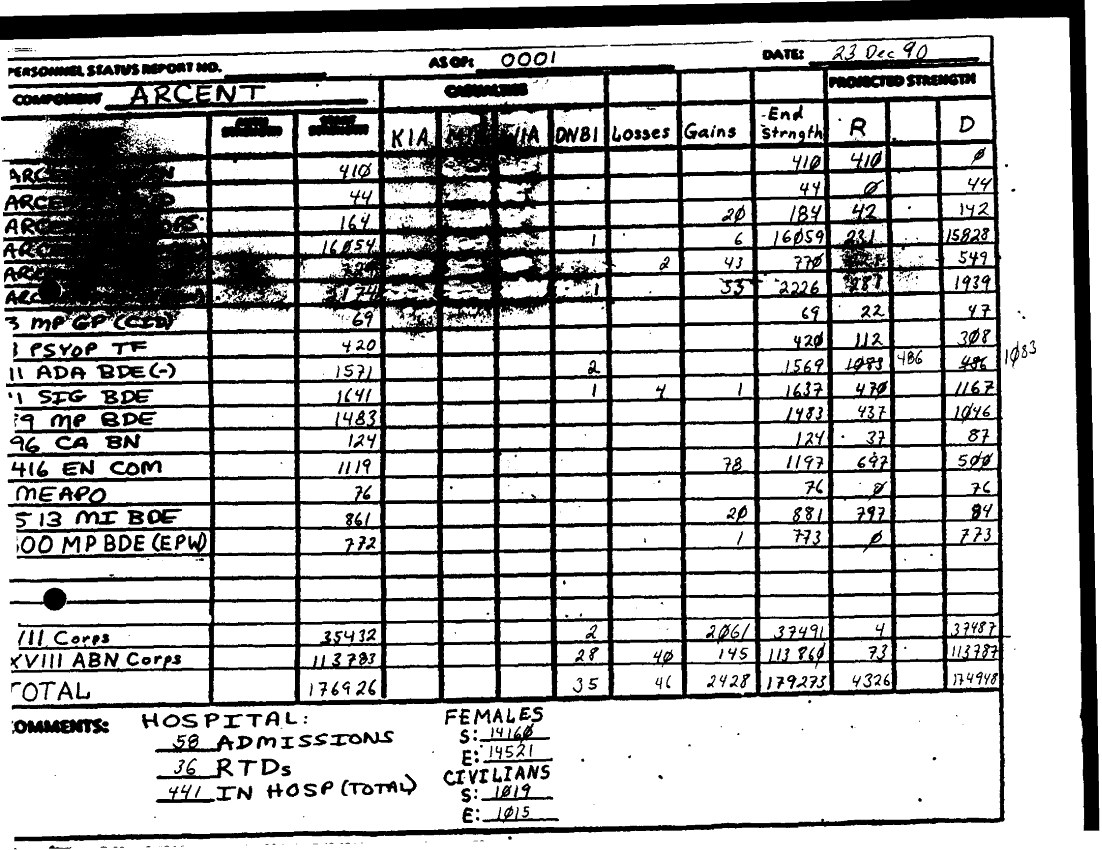 PERSONNEL STATUS REPORT NO. AS OF: 0001 DATE: 23 Dec 90
COMPONENT ARCENT CASUALTIES PROJECTED STRENGTH
STRENGTH STRENGTH KIA WIA DNBI Losses Gains End Strngth R D
410 410 410 Ø
44 44 Ø 44
164 20 184 42 142
16054 1 6 16059 231 15828
2 43 770 549
2174 1 53 2226 287 1939
3 MP GP (CID) 69 69 22 47
PSYOP TF 420 420 112 308
11 ADA BDE (-) 1571 2 1569 1083 486 486 1083
1 SIG BDE 1641 1 4 1 1637 470 1167
9 MP BDE 1483 1483 437 1046
96 CA BN 124 124 37 87
416 EN COM 1119 78 1197 697 500
MEAPO 76 76 Ø 76
513 MI BDE 861 20 881 797 84
00 MP BDE (EPW) 772 1 773 Ø 773
VII Corps 35432 2 2061 37491 4 37487
XVIII ABN Corps 113783 28 40 145 113860 73 113787
TOTAL 176926 35 46 2428 179273 4326 174948
COMMENTS: HOSPITAL: FEMALES
58 ADMISSIONS S: 14160
E: 14521
36 RTDs CIVILIANS
441 IN HOSP (TOTAL) S: 1019
E: 1015